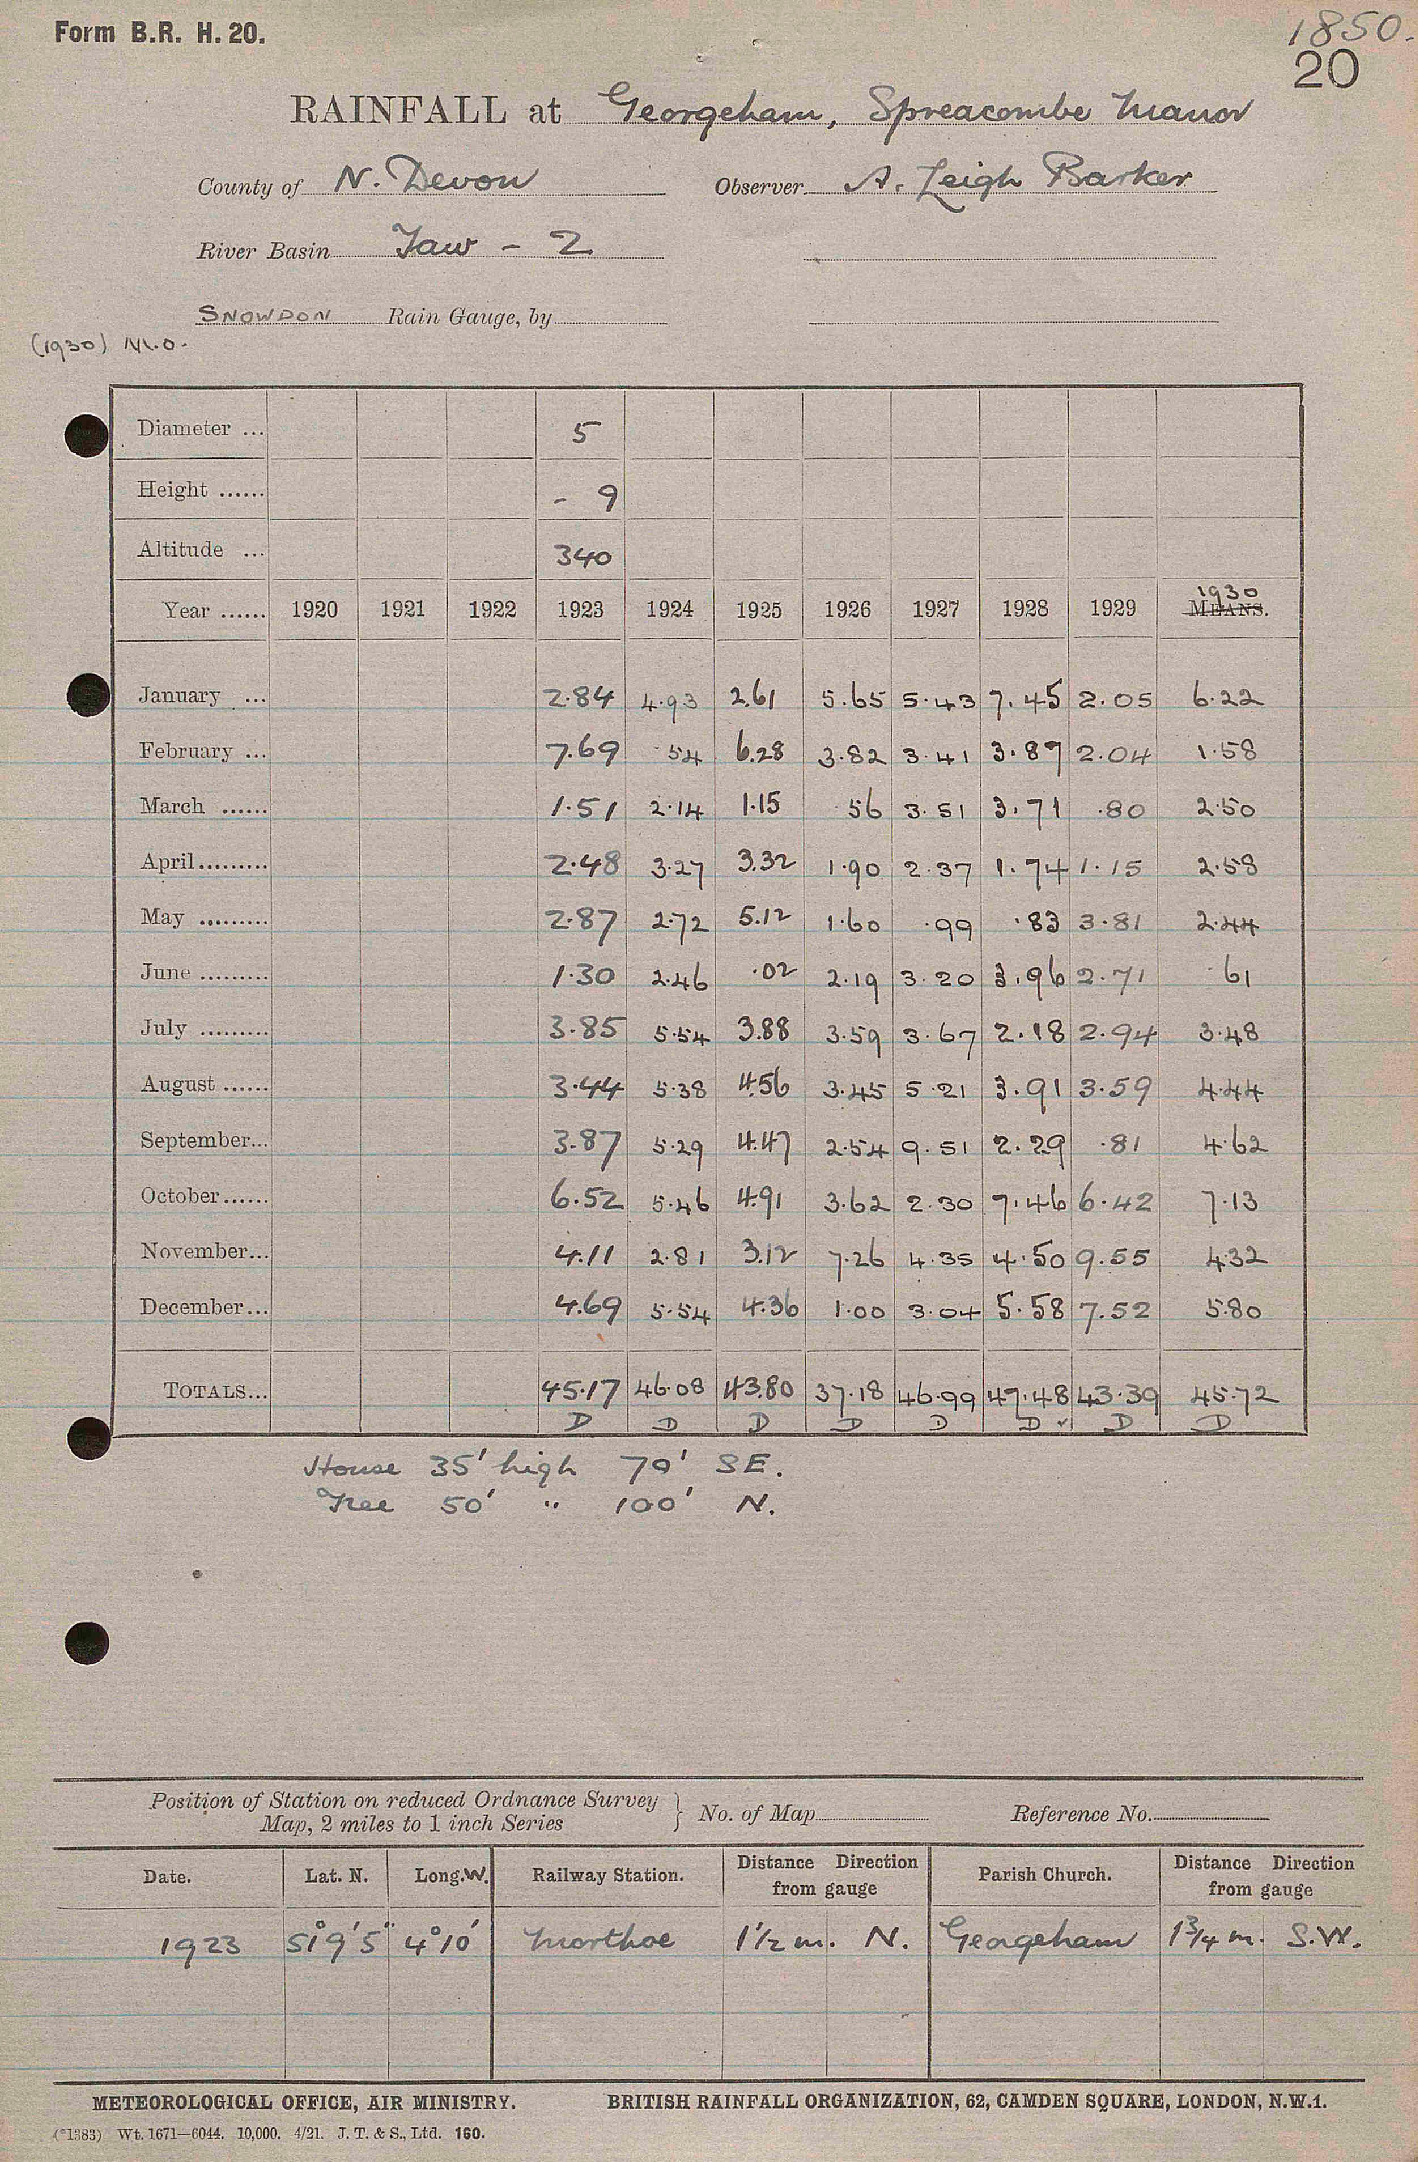 Form B.R. H. 20.
1850.
20
RAINFALL at Georgeham, Spreacombe Manor
County of N. Devon Observer A. Leigh Barker
River Basin Taw - 2
SNOWDON Rain Gauge, by
(1930) M.O.
Diameter ... 5
Height ...... - 9
Altitude ... 340
Year ...... 1920 1921 1922 1923 1924 1925 1926 1927 1928 1929 1930 MEANS.
January ... 2.84 4.93 2.61 5.65 5.43 7.45 2.05 6.22
February ... 7.69 .54 6.28 3.82 3.41 3.87 2.04 1.58
March ...... 1.51 2.14 1.15 .56 3.51 3.71 .80 2.50
April ......... 2.48 3.27 3.32 1.90 2.37 1.74 1.15 2.58
May ......... 2.87 2.72 5.12 1.60 .99 .83 3.81 2.44
June ......... 1.30 2.46 .02 2.19 3.20 3.96 2.71 .61
July ......... 3.85 5.54 3.88 3.59 3.67 2.18 2.94 3.48
August ...... 3.44 5.38 4.56 3.45 5.21 3.91 3.59 4.44
September... 3.87 5.29 4.47 2.54 9.51 2.29 .81 4.62
October...... 6.52 5.46 4.91 3.62 2.30 7.46 6.42 7.13
November... 4.11 2.81 3.12 7.26 4.35 4.50 9.55 4.32
December... 4.69 5.54 4.36 1.00 3.04 5.58 7.52 5.80
TOTALS... 45.17 46.08 43.80 37.18 46.99 47.48 43.39 45.72
D D D D D D ✓ D D
House 35' high 70' SE.
Tree 50' " 100' N.
Position of Station on reduced Ordnance Survey
Map, 2 miles to 1 inch Series } No. of Map Reference No.
Date. Lat. N. Long. W. Railway Station. Distance Direction from gauge Parish Church. Distance Direction from gauge
1923 51° 9' 5" 4° 10' Morthoe 1 1/2 m. N. Georgeham 1 3/4 m. S.W.
METEOROLOGICAL OFFICE, AIR MINISTRY. BRITISH RAINFALL ORGANIZATION, 62, CAMDEN SQUARE, LONDON, N.W.1.
(*1383) Wt. 1671—6044. 10,000. 4/21. J. T. & S., Ltd. 160.